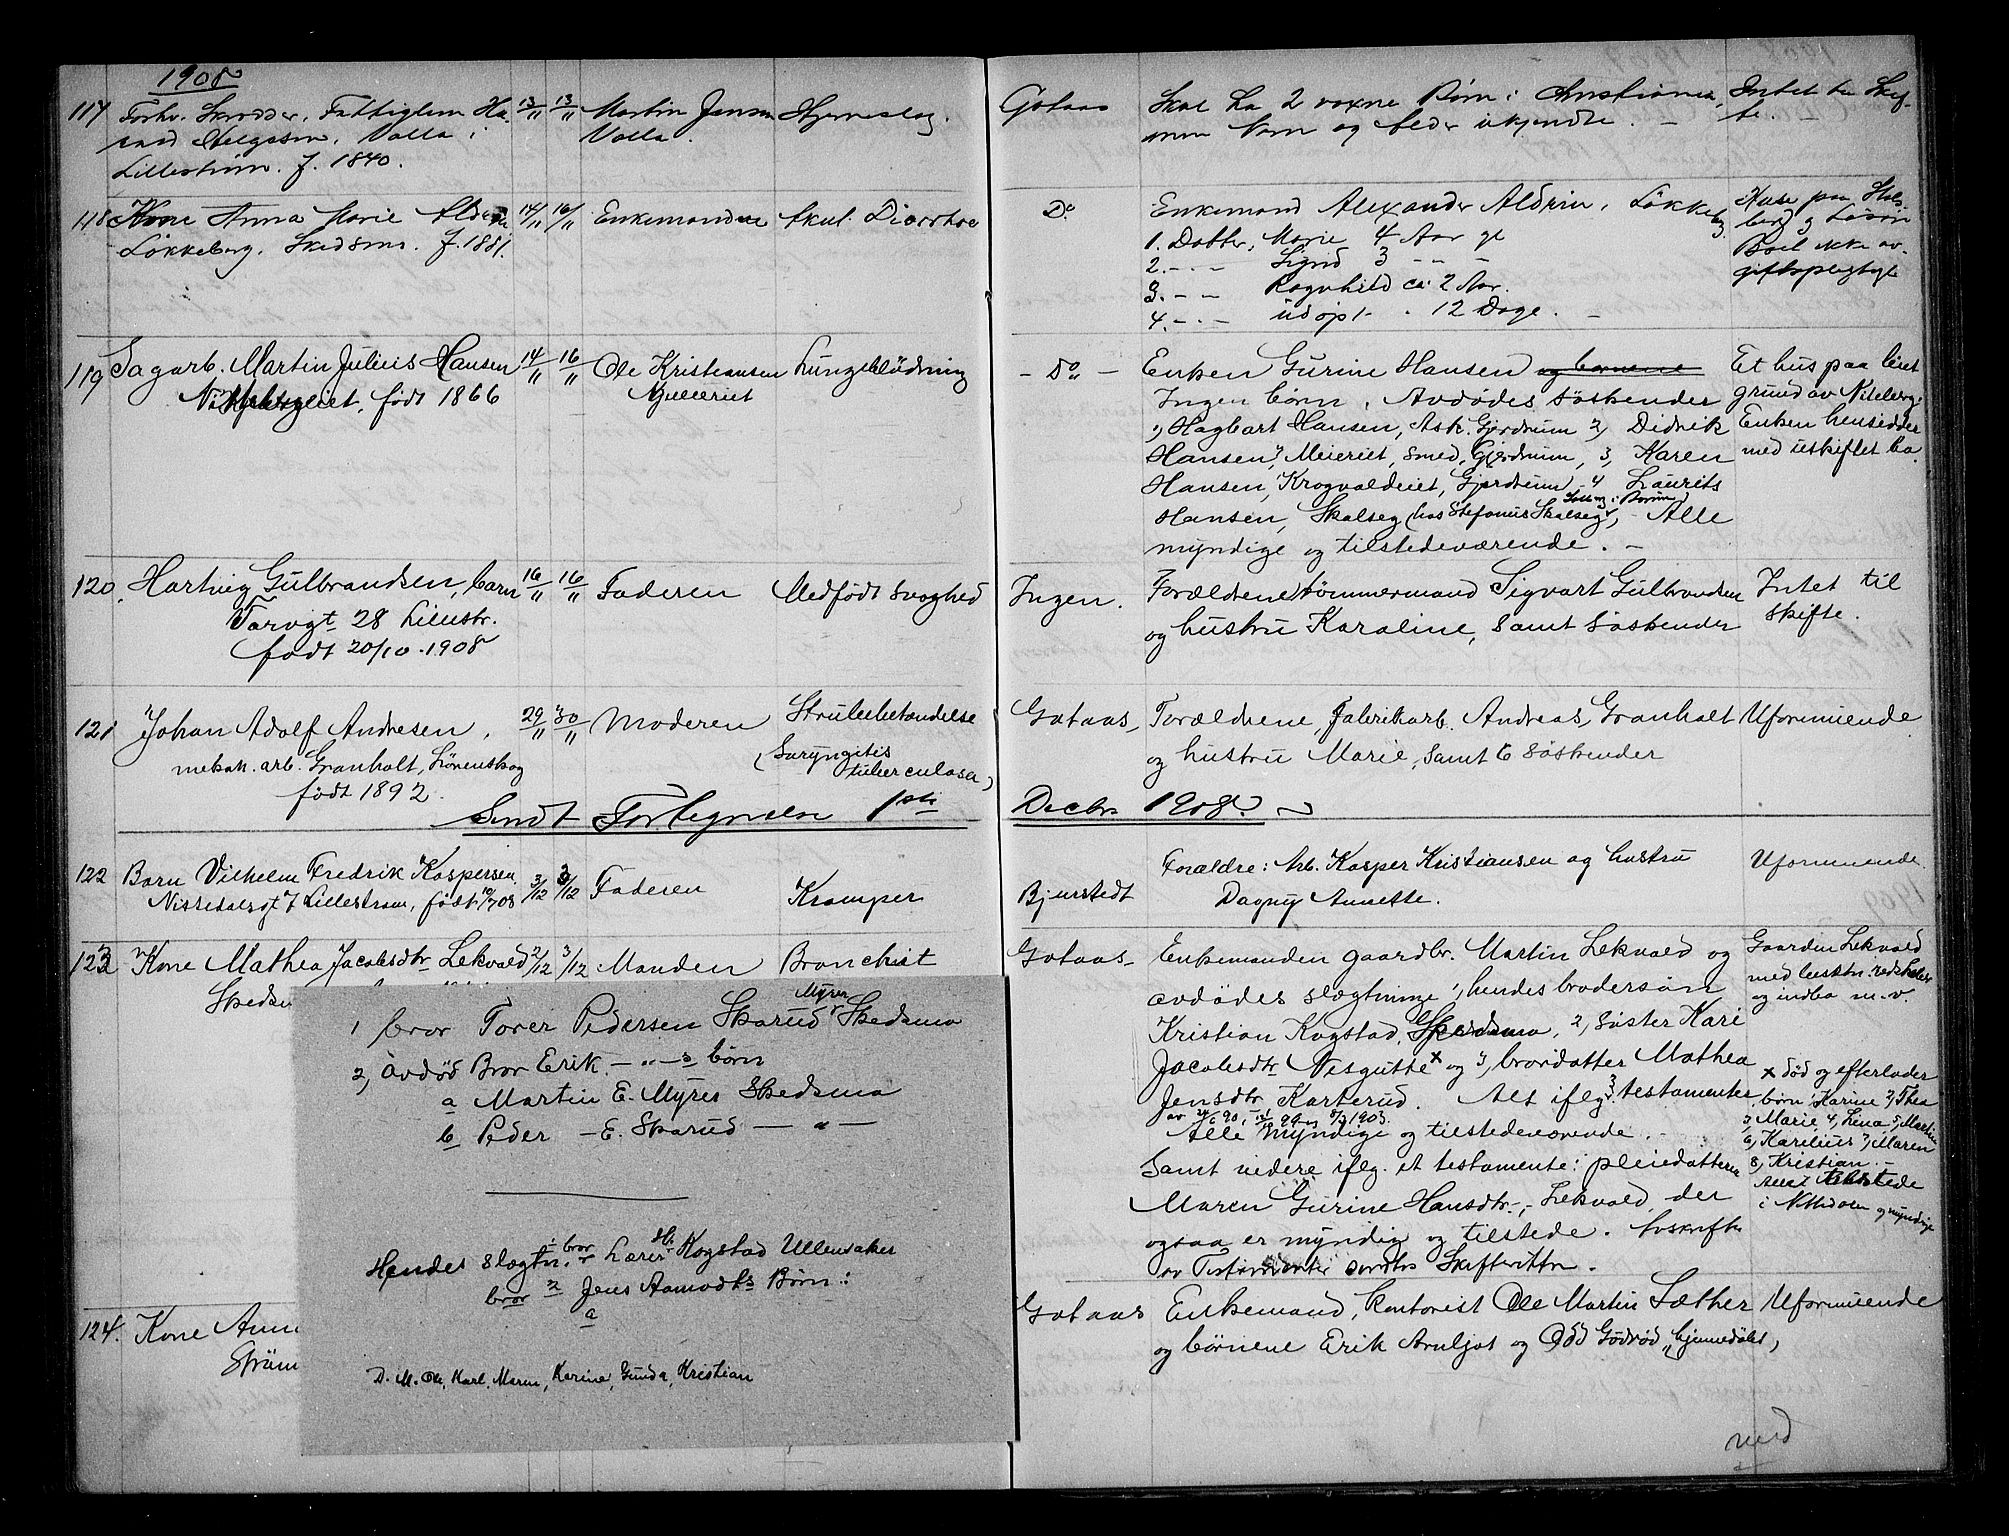 1908
117 Forhv. Skrædder, Fattiglem Ha-
Helgesen, Volla i
Lillestrøm. f. 1840.
13/11 13/11 Martin Jensen
Volla.
Hjerneslag.
Gotaas
Skal ha 2 voxne Børn i Kristiania,
men Navn og alder ukjendte. –
Intet til Skif-
te.
118 Kone Anna Marie Aldrin
Løkkeberg. Skedsmo. f. 1881.
14/11 16/11 Enkemanden Akut Diarrhoe
Do
Enkemand Alexander Aldrin, Løkkeberg
1. Datter, Marie 4 Aar gl
2. - - - Signe 3 - - -
3. - - Ragnhild ca: 2 Aar.
4. - - - udøpt - 12 Dage. –
Huse paa
berg og Løsøre
Boet ikke av-
giftspligtigt
119 Sagarb. Martin Julius Hansen
født 1866
14/11 16/11 Ole Kristiansen
Mølleriet
Lungeblødning
- Do -
Enken Gurine Hansen og børnene
Ingen børn. Avdødes søskender
1, Hagbart Hansen, Ask, Gjerdrum 2, Didrik
Hansen, Meieriet, Smed, Gjerdrum, 3, Karen
Hansen, Krogvoldeiet, Gjerdrum, 4 Laurits
Hansen, Skalseg (hos Stefanus Skalseg), – Alle
myndige og tilstedeværende. –
Et hus paa leiet
grund av Niteberg.
Enken hensidder
med uskiftet bo.
120. Hartvig Gulbrandsen, barn
Torvgt 28 Lillestr.
født 20/10 - 1908
16/11 16/11 Faderen Medfødt svaghed
Ingen.
Forældrene tømmermand Sigvart Gulbrandsen
og hustru Karoline, samt søskender
Intet til
skifte.
121 Johan Adolf Andresen,
mekan. arb. Granholt, Lørenskog
født 1892.
29/11 30/11 Moderen Strubebetændelse
(Laryngitis
tuberculosa)
Gotaas
Forældrene, fabrikarb. Andreas Granholt
og hustru Marie, samt 6 søskender
Uformuende
Sendt Fortegnelse 1ste Decbr 1908.
122 Barn Vilhelm Fredrik Kaspersen
Nittedalsgt 7 Lillestrøm, født 08
3/12 3/12 Faderen Kramper
Bjurstedt
Forældre: Arb. Kasper Kristiansen og hustru
Dagny Annette.
Uformuende
123 Kone Mathea Jacobsdtr Lekvold
Skeds
2/12 3/12 Manden Bronchit
Gotaas
Enkemanden gaardbr. Martin Lekvold og
avdødes slægtninge 1, hendes brodersøn
Kristian Kogstad, Skedsmo, 2, søster Kari
Jacobsdtr Visgutte x og 3, brordatter Mathea
Jensdtr Karterud. Alt iflg. 3 testamenter
av
Alle myndige og tilstedeværende. –
Samt videre iflg. et testamente: pleiedatteren
Maren Gurine Hansdtr., Lekvold, der
ogsaa er myndig og tilstede. Avskrifter
av Testamenter sendtes Skifteretten.
Gaarden Lekvold
med besætn. redskaber
og indbo m. v.
x død og efterlader
børn 1, Karine 2, Thea
3, Marie, 4, Lina 5, Martin
6, Karelius 7, Maren
8, Kristian –
tilstede
i Nittedalen og myndige
1 bror Torer Pedersen Skarud Myrer Skedsmo
2, Avdød Bror Erik — „ — s børn
a Martin E. Myrer Skedsmo
b Peder — E. Skarud — „ —
Hendes slægtn. 1 bror Lærer H. Kogstad Ullensaker
bror 2 Jens Aamodts Børn:
a
D. M. Ole, Karl, Maren, Karine, Gunda, Kristian
124. Kone Ann
Strøm
Gotaas
Enkemand, kontorist Ole Martin Sæther
og børnene Erik Arnljot og Odd Godrød, hjemmedøbt,
Uformuende
vend